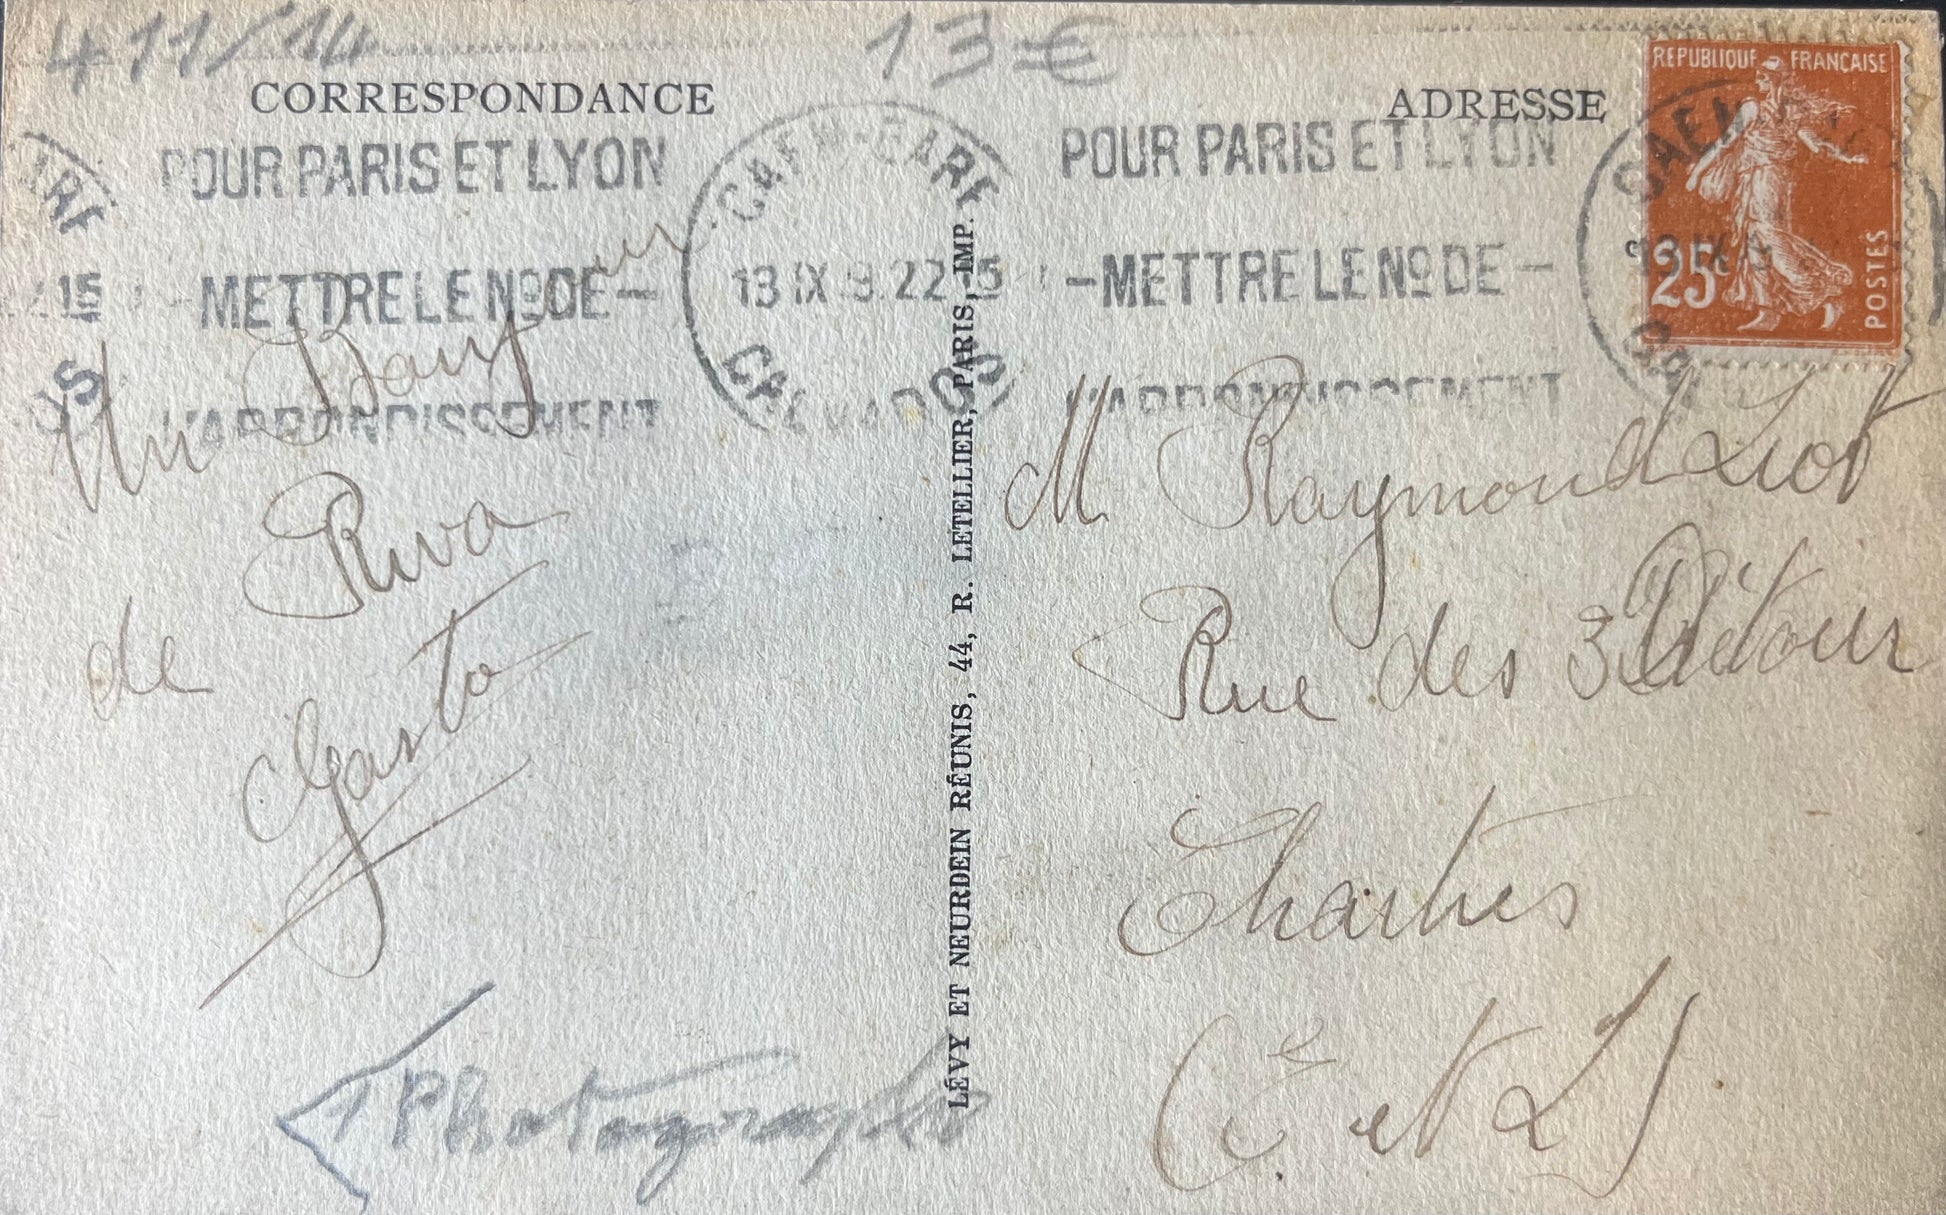 411/14
13 €
CORRESPONDANCE
ADRESSE
REPUBLIQUE FRANÇAISE
25c
POSTES
POUR PARIS ET LYON
-METTRE LE No DE-
L'ARRONDISSEMENT
CAEN-GARE
13 IX 9.22 15
CALVADOS
POUR PARIS ET LYON
-METTRE LE No DE-
L'ARRONDISSEMENT
GARE
15
OS
CAEN
Un
de Riva
Gasto
Photographe
LÉVY ET NEURDEIN RÉUNIS, 44, R. LETELLIER, PARIS, IMP.
M. Raymond Liot
Rue des 3 Détour
Chartres
(E et L)